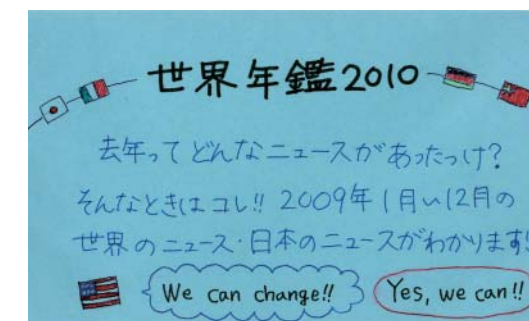 世界年鑑2010
去年ってどんなニュースがあったっけ?
そんなときはコレ!! 2009年1月〜12月の
世界のニュース・日本のニュースがわかります!
We can change!!
Yes, we can!!